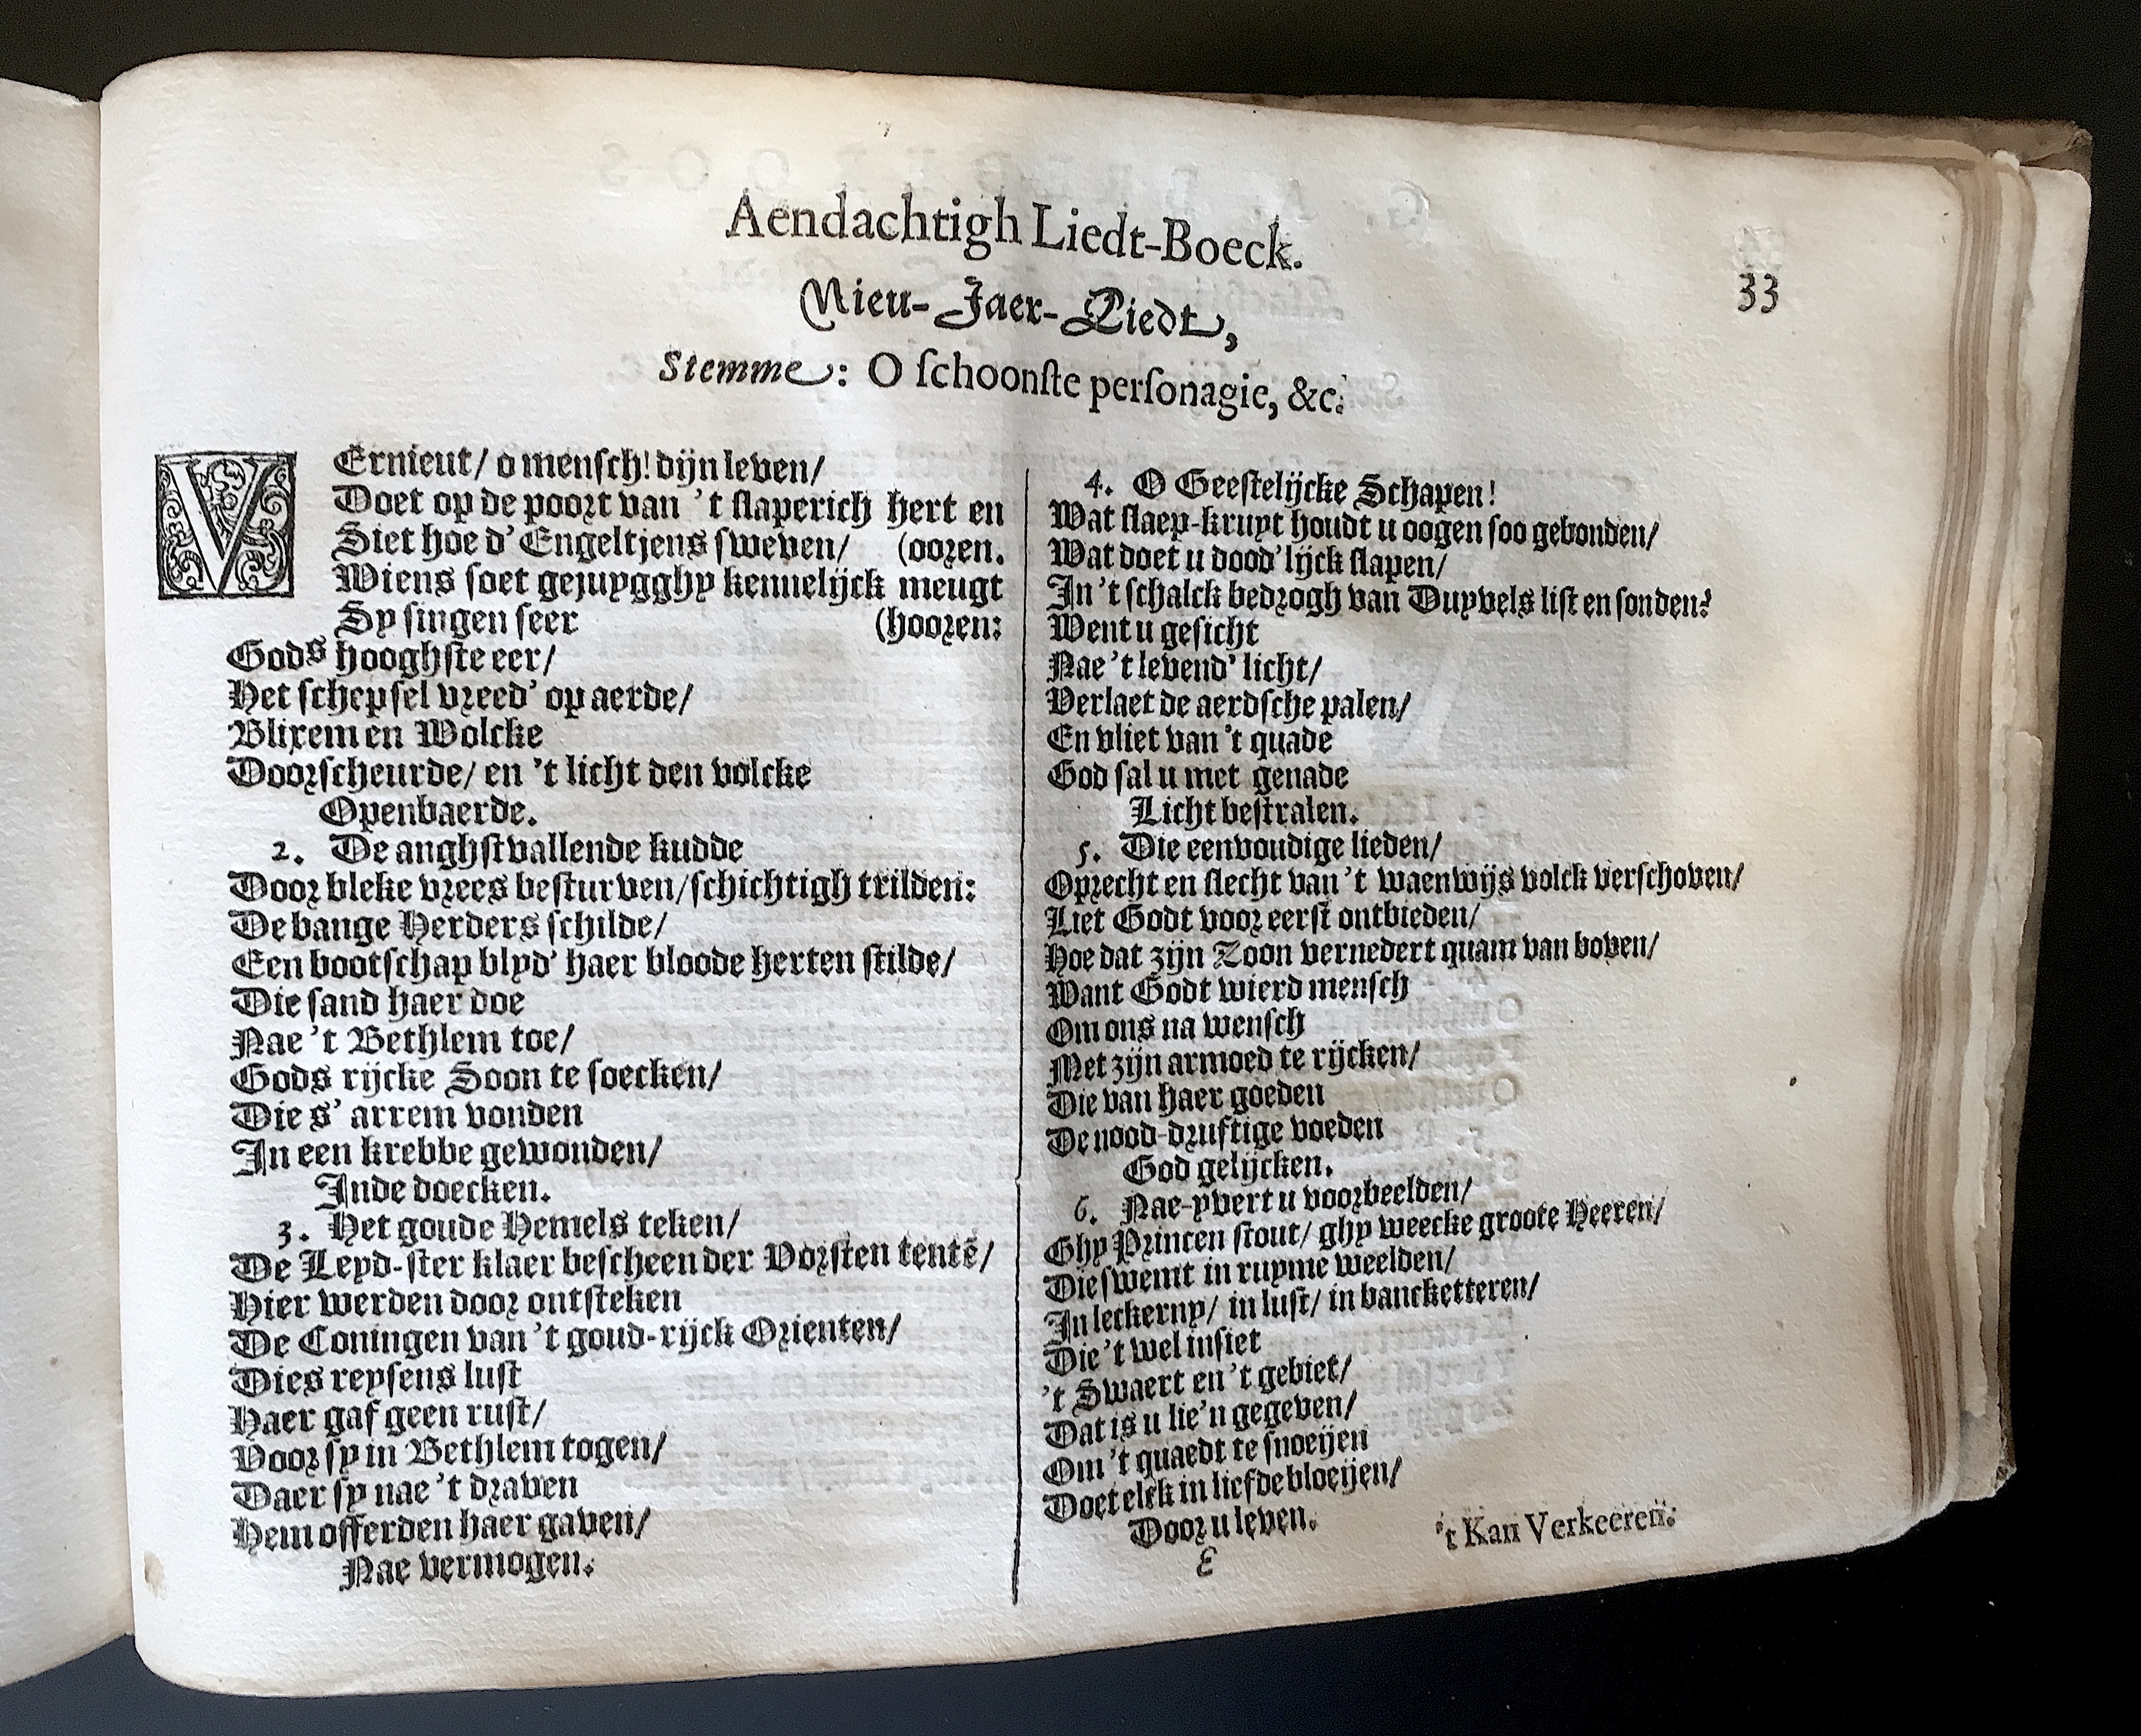 Aendachtigh Liedt-Boeck.
33
Nieu-Jaer-Liedt,
Stemme: O schoonste personagie, &c.
VErnieut/ o mensch! dijn leven/
Doet op de poort van 't slaperich hert en
Siet hoe d' Engeltjens sweven/ (ooren.
Wiens soet gejuygghy kennelijck meugt
Sy singen seer (hooren:
Gods hooghste eer/
Het schepsel vreed' op aerde/
Blixem en Wolcke
Doorscheurde/ en 't licht den volcke
Openbaerde.
2. De anghstvallende kudde
Door bleke vrees besturven/schichtigh trilden:
De bange Herders schilde/
Een bootschap blyd' haer bloode herten stilde/
Die sand haer doe
Nae 't Bethlem toe/
Gods rijcke Soon te soecken/
Die s' arrem vonden
In een krebbe gewonden/
Inde doecken.
3. Het goude Hemels teken/
De Leyd-ster klaer bescheen der Vorsten tentē/
Hier werden door ontsteken
De Coningen van 't goud-rijck Orienten/
Dies reysens lust
Haer gaf geen rust/
Voor sy in Bethlem togen/
Daer sy nae 't draven
Hem offerden haer gaven/
Nae vermogen.
4. O Geestelijcke Schapen!
Wat slaep-kruyt houdt u oogen soo gebonden/
Wat doet u dood'lijck slapen/
In 't schalck bedrogh van Duyvels list en sonden?
Went u gesicht
Nae 't levend' licht/
Verlaet de aerdsche palen/
En vliet van 't quade
God sal u met genade
Licht bestralen.
5. Die eenvoudige lieden/
Oprecht en slecht van 't waenwijs volck verschoven/
Liet Godt voor eerst ontbieden/
Hoe dat zijn Zoon vernedert quam van boven/
Want Godt wierd mensch
Om ons na wensch
Met zijn armoed te rijcken/
Die van haer goeden
De nood-druftige voeden
God gelijcken.
6. Nae-yvert u voorbeelden/
Ghy Princen stout/ ghy weecke groote Heeren/
Die swemt in ruyme weelden/
In leckerny/ in lust/ in bancketteren/
Die 't wel insiet
't Swaert en 't gebiet/
Dat is u lie'n gegeven/
Om 't quaedt te snoeijen
Doet elck in liefde bloeijen/
Door u leven.
't Kan Verkeeren.
E